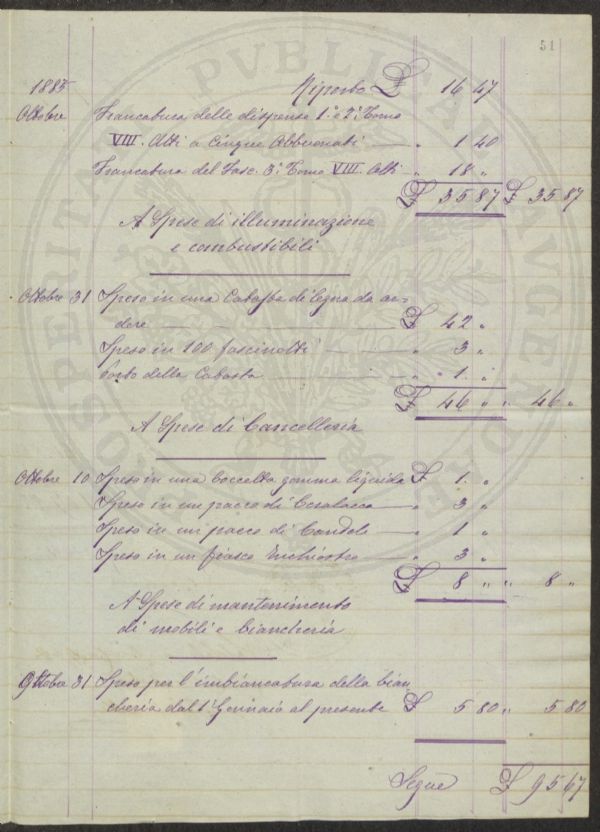 51
1885 Riporto £ 16 47
Ottobre Francatura delle dispense 1ª e 2ª Tomo
VIII. Atti a Cinque Abbuonati — „ 1 40
Francatura del Fasc. 3º Tomo VIII. Atti „ 18 „
£ 35 87 £ 35 87
A Spese di illuminazione
e combustibili
Ottobre 31 Speso in una Catasta di legna da ar-
dere — £ 42 „
Speso in 100 fascinotti — „ 3 „
Porto della Catasta — „ 1 „
£ 46 „ „ 46 „
A Spese di Cancelleria
Ottobre 10 Speso in una boccetta gomma liquida £ 1 „
Speso in un pacco di Ceralacca — „ 3 „
Speso in un pacco di Candele — „ 1 „
Speso in un fiasco Inchiostro — „ 3 „
£ 8 „ „ 8 „
A Spese di mantenimento
di mobili e biancheria
Ottobre 31 Speso per l'imbiancatura della bian
cheria dal 1º Gennaio al presente £ 5 80 „ 5 80
Segue £ 95 67
PVBLICAE AVGENDAE PROSPERITATI